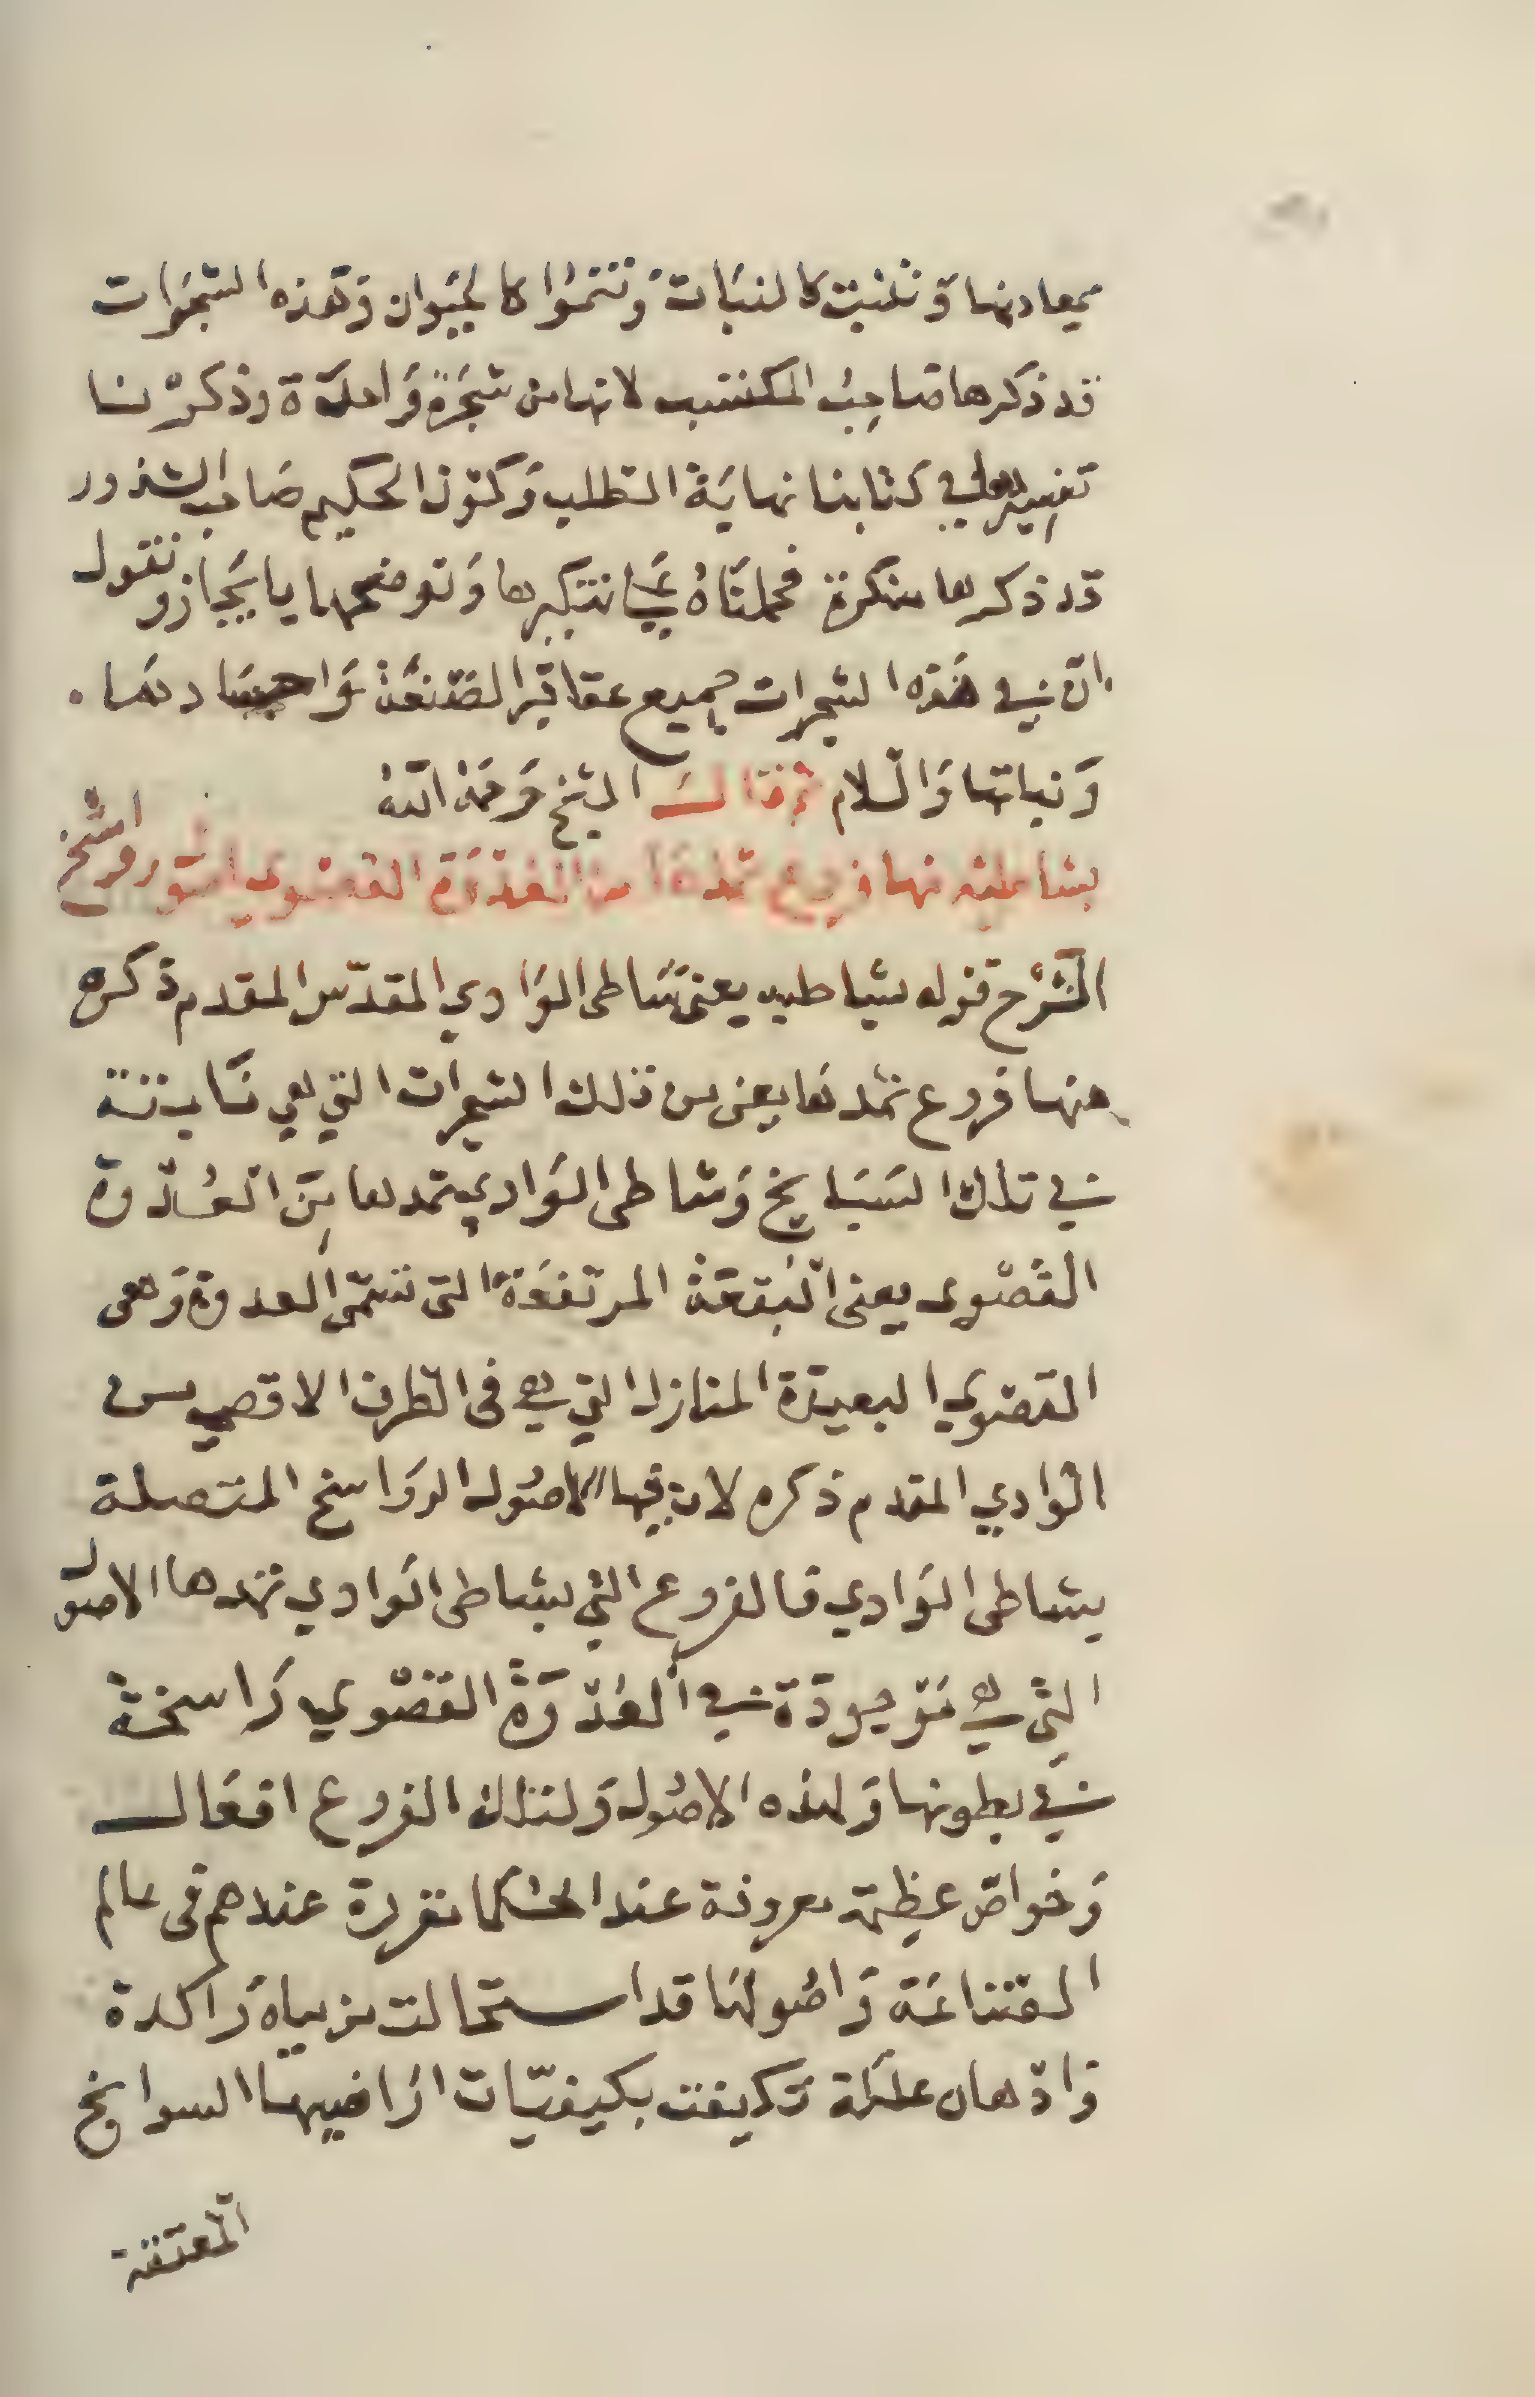 بمعادنها وتنبت كالنبات وتنموا كالحيوان وهذه الشجرات
قد ذكرها صاحب المكتسب لانها من شجرة واحدة وذكرنا
تفسيرها في كتابنا نهاية الطلب وكون الحكيم صاحب الشذور
قد ذكرها منكرة فحملناه علي تنكيرها وتوضحها بايجاز ونقول
ان في هذه الشجرات جميع عقاقير الصنعة واجسادها
ونباتها والسلام ثم قال الشيخ رحمة الله
بشاطيه منها فروع تمدها من العدوة القصوي اصول رواسخ
الشرح قوله بشاطيه يعني شاطي الوادي المقدس المقدم ذكره
منها فروع تمدها يعني من تلك الشجرات التي هي نابتة
في تلك السبايخ وشاطي الوادي تمدها من العدوة
القصوي يعني البقعة المرتفعة التي تسمى العدوة وهي
القصوي البعيدة المنازل التي هي في الطرف الاقصي من
الوادي المقدم ذكره لان فيها الاصول الرواسخ المتصلة
بشاطي الوادي فالفروع التي بشاطي الوادي تمدها الاصول
التي هي موجودة في العدوة القصوي راسخة
في بطونها ولهذه الاصول ولتلك الفروع افعال
وخواص عظيمة معروفة عند الحكما مقررة عندهم في عالم
الصناعة واصولها قد استحالت من مياه راكدة
وادهان علكة تكيفت بكيفيات اراضيها السوابخ
المعتقة